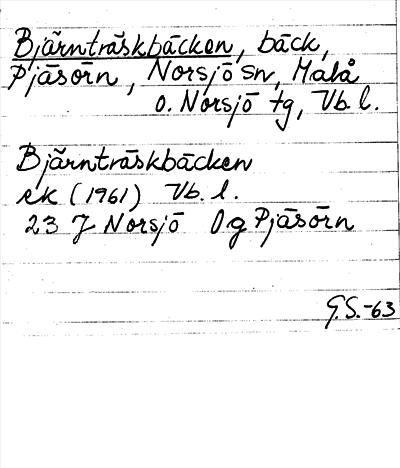 Bjärnträskbäcken, bäck,
Pjäsörn, Norsjö sn, Malå
o. Norsjö tg, Vb. l.
Bjärnträskbäcken
ek (1961) Vb. l.
23 J Norsjö Og Pjäsörn
G.S.-63